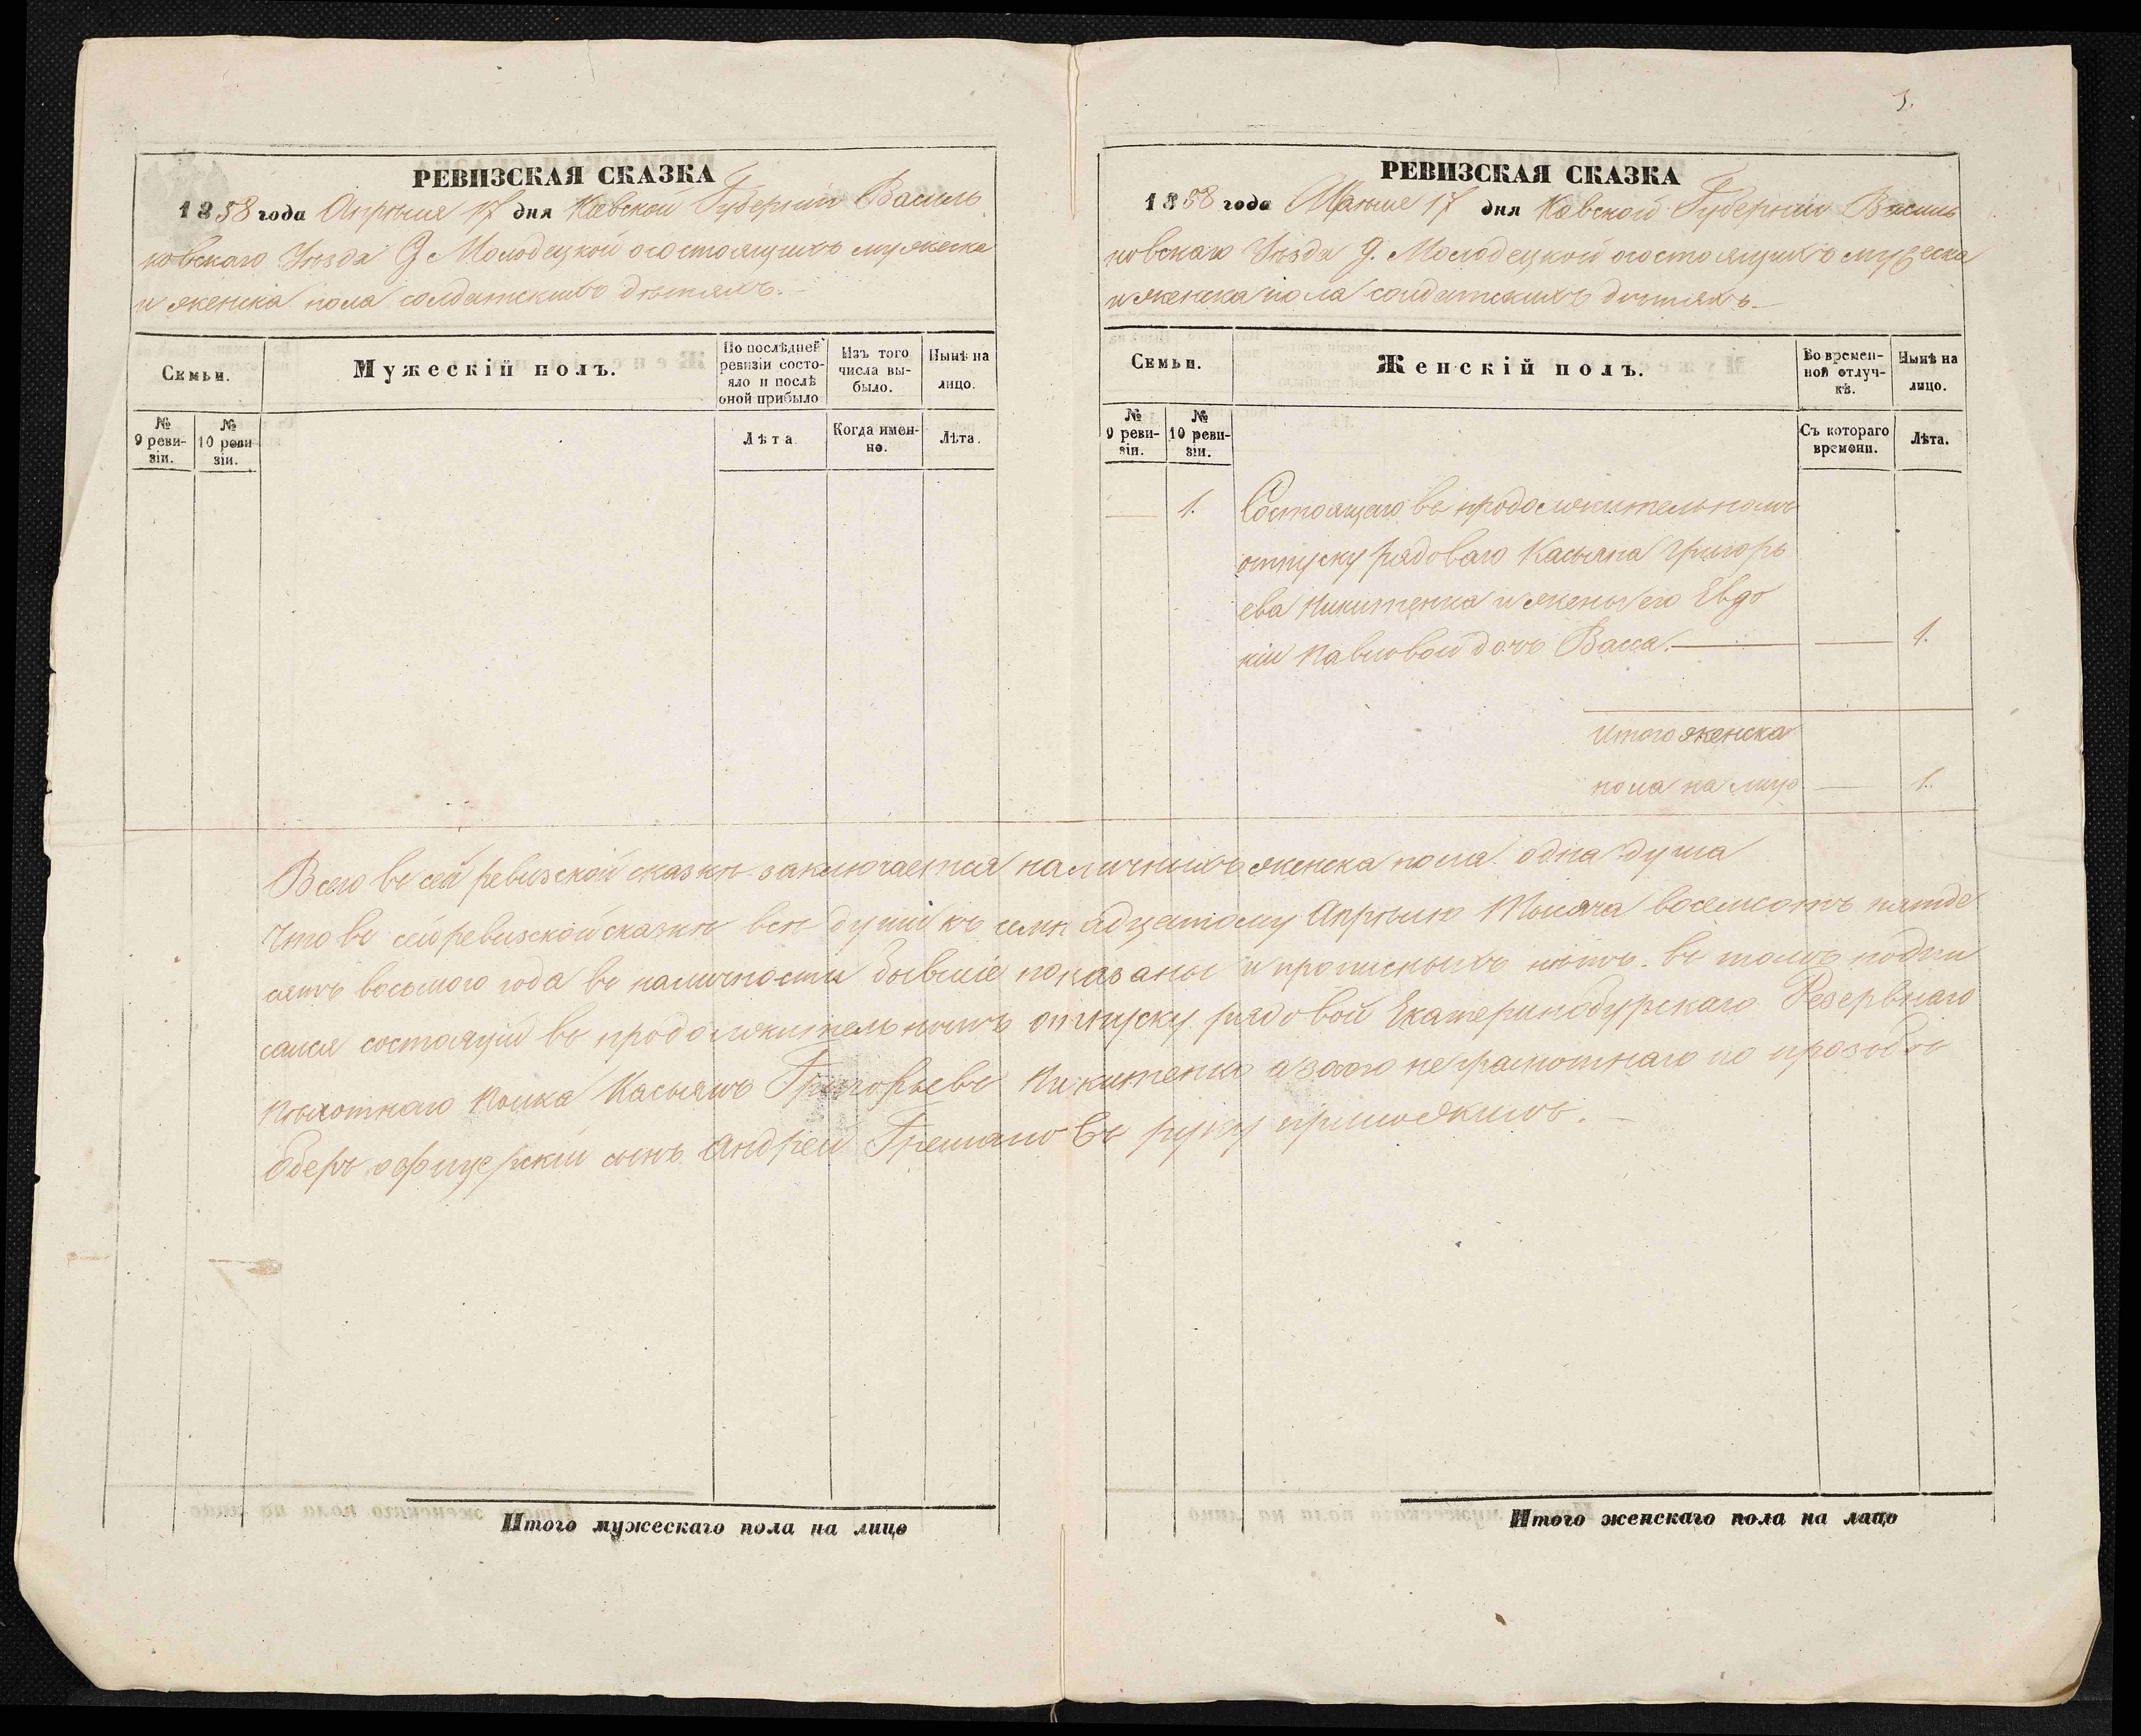 РЕВИЗСКАЯ СКАЗКА
1858 года Апрѣля 17 дня Кіевской Губерніи Василь
ковскаго Уѣзда Д Молодецкой о состоящихъ мужеска
и женска пола солдатскихъ дѣтяхъ.
Семьи.
Мужескій полъ.
По послѣдней ревизіи состояло и послѣ оной прибыло
Изъ того числа выбыло.
Нынѣ на лицо.
№ 9 ревизіи.
№ 10 ревизіи.
Лѣта
Когда именно.
Лѣта.
Итого мужескаго пола на лицо
3.
РЕВИЗСКАЯ СКАЗКА
1858 года 17 дня Кіевской Губерніи Василь
ковскаго Уѣзда Д. Молодецкой о состоящихъ мужеска
и женска пола солдатскихъ дѣтяхъ
Семьи.
Женскій полъ.
Во временной отлучкѣ.
Нынѣ на лицо.
№ 9 ревизіи.
№ 10 ревизіи.
Съ котораго времени.
Лѣта.
1. Состоящаго въ продолжительномъ
отпуску рядоваго Касьяна Григорь
ева Никитенка и жены его Евдо
кіи Павловой дочь Васса. 1.
Итого женска
пола на лицо 1.
Всего въ сей ревизской сказкѣ заключается наличныхъ женска пола одна душа
Что въ сей ревизской сказкѣ всѣ души къ семнадцатому Апрѣлю Тысяча восемсотъ пятде
сятъ восьмого года въ наличности бывшіе показаны и прописныхъ нѣтъ въ томъ подпи
сался состоящій въ продолжительномъ отпуску рядовой Екатеринбургскаго Резервнаго
Пѣхотнаго Полка Касьянъ Григорьевъ Никитенко а за его неграмотнаго по прозьбѣ
Оберъ офицерскій сынъ Андрей руку приложилъ.
Итого женскаго пола на лицо